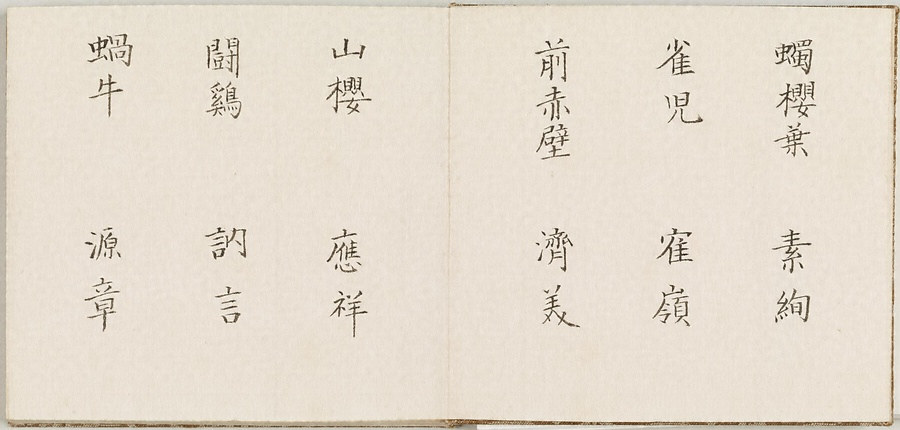 蠋櫻葉 素絢
雀児 寉嶺
前赤壁 濟美
山櫻 應祥
闘鷄 訥言
蝸牛 源章